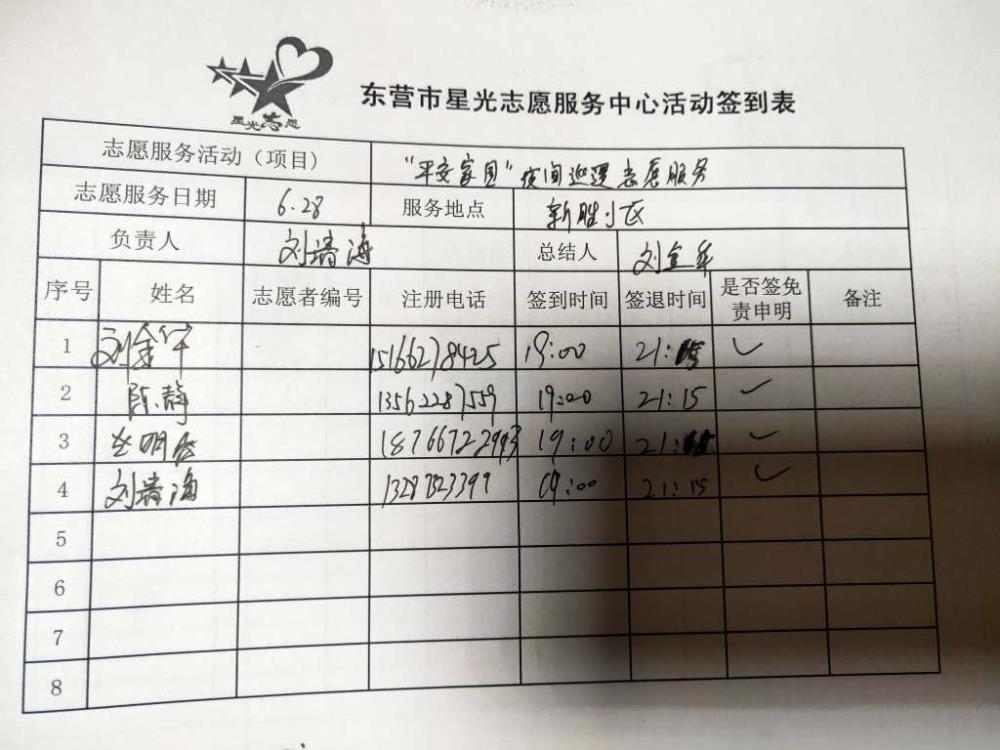 星光志愿
东营市星光志愿服务中心活动签到表
志愿服务活动（项目） “平安家园”夜间巡逻志愿服务
志愿服务日期 6.28 服务地点 新胜小区
负责人 刘清海 总结人 刘金华
序号 姓名 志愿者编号 注册电话 签到时间 签退时间 是否签免责申明 备注
1 刘金华 15166278425 19:00 21: ✓
2 陈静 13562287559 19:00 21:15 ✓
3 19:00 21: ✓
4 刘清海 19:00 21:15 ✓
5
6
7
8